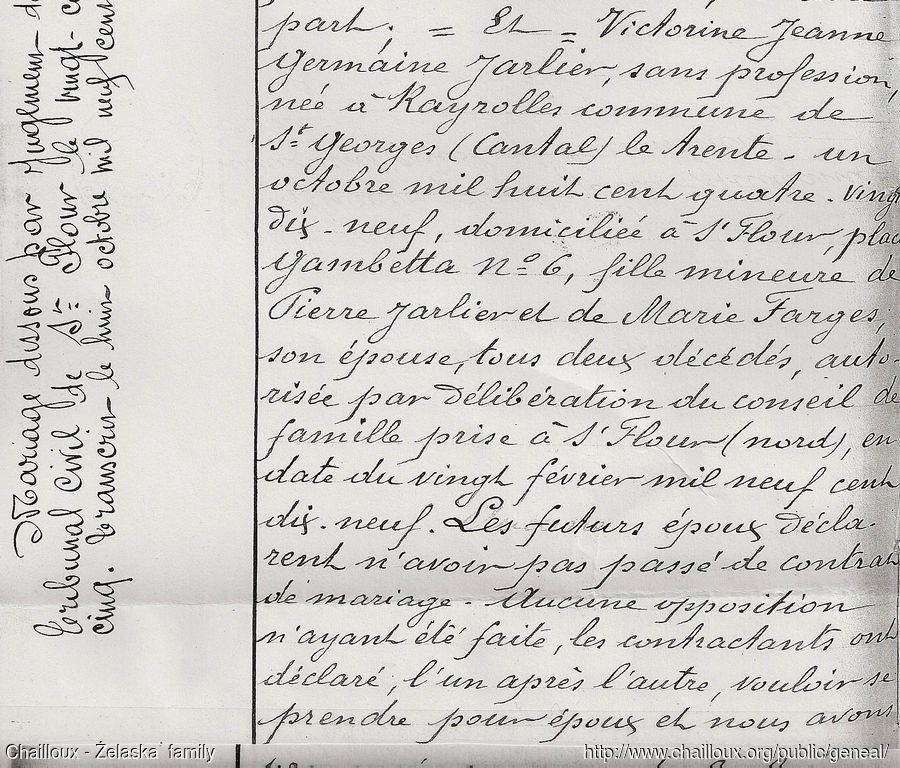 Mariage dissous par Jugement d
Tribunal Civil de St Flour le vingt-
cinq. Transcrit le huit octobre mil neuf cent
part; = Et = Victorine Jeanne
Germaine Jarlier, sans profession,
née à Rayrolles commune de
St Georges (Cantal) le trente-un
octobre mil huit cent quatre-vingt
dix-neuf, domiciliée à St Flour, plac
Gambetta No 6, fille mineure de
Pierre Jarlier et de Marie Farges,
son épouse, tous deux décédés, auto-
risée par Délibération du conseil de
famille prise à St Flour (nord), en
date du vingt février mil neuf cent
dix-neuf. Les futurs époux décla-
rent n'avoir pas passé de contrat
de mariage. Aucune opposition
n'ayant été faite, les contractants ont
déclaré, l'un après l'autre, vouloir se
prendre pour époux et nous avons
Chailloux - Żelaska family
http://www.chailloux.org/public/geneal/